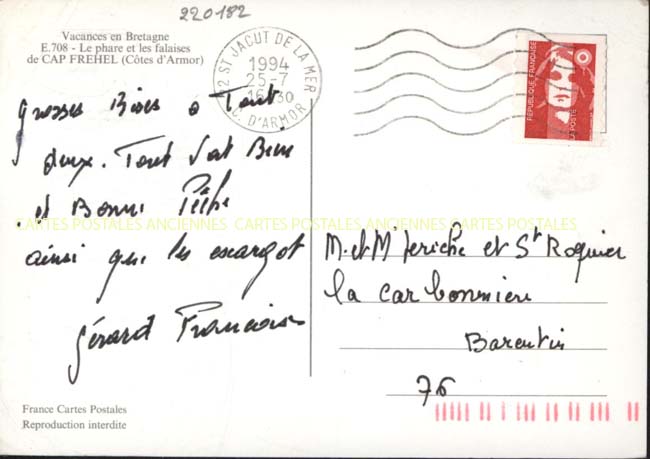 220182
Vacances en Bretagne
E.708 - Le phare et les falaises
de CAP FREHEL (Côtes d'Armor)
22 ST JACUT DE LA MER
1994
25-7
16 30
C. D'ARMOR
RÉPUBLIQUE FRANÇAISE
LA POSTE
grosses Bises a Tout
deux. Tout Vat Bien
et Bonne Pêche
CARTES POSTALES ANCIENNES CARTES POSTALES ANCIENNES CARTES POSTALES ANCIENNES
ainsi que les escargot
Gérard Francoise
M. et M et St Roquier
la carbonniere
Barentin
76
France Cartes Postales
Reproduction interdite